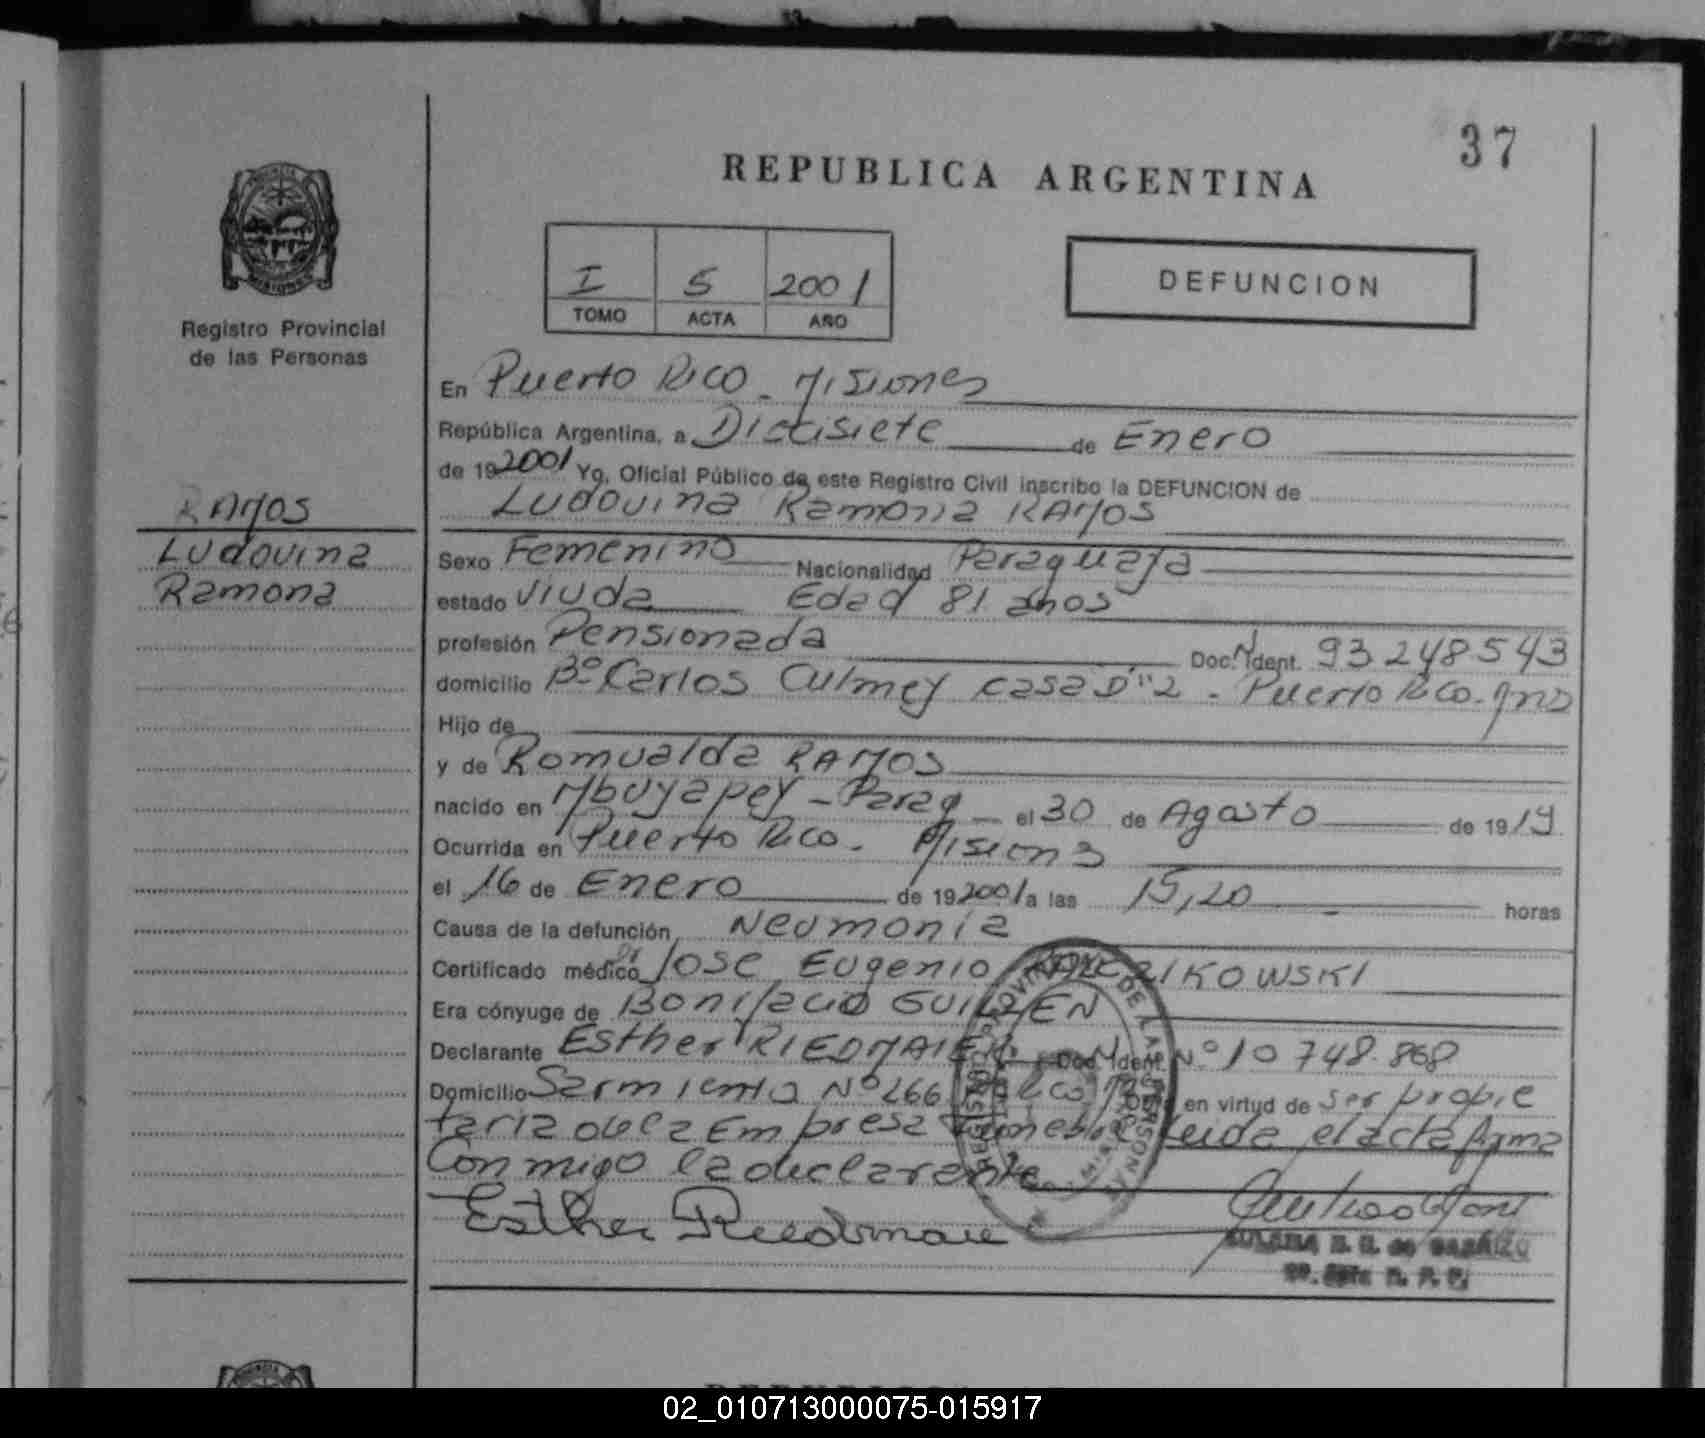 37
REPUBLICA ARGENTINA
I 5 2001
TOMO ACTA AÑO
DEFUNCION
Registro Provincial
de las Personas
RAMOS
Ludovina
Ramona
En Puerto Rico - Misiones
República Argentina, a Diecisiete de Enero
de 192001 Yo, Oficial Público de este Registro Civil inscribo la DEFUNCION de
Ludovina Ramona RAMOS
Sexo Femenino Nacionalidad Paraguaya
estado Viuda Edad 81 años
profesión Pensionada Doc. N Ident. 93 248 543
domicilio Bº Carlos Culmey casa D"2 - Puerto Rico - Mns
Hijo de
y de Romualda RAMOS
nacido en Mbuyapey - Parag el 30 de Agosto de 1919
Ocurrida en Puerto Rico - Misiones
el 16 de Enero de 192001 a las 15,20 horas
Causa de la defunción Neumonía
Certificado médico Dr Jose Eugenio
Era cónyuge de Bonifacio GUILLEN
Declarante Esther RIEDMAIER Doc. N Ident. Nº 10 748.868
Domicilio Sarmiento Nº 266 en virtud de ser propie
taria de la Empresa Fúnebre Leida el acta firma
Conmigo la declarante
02_010713000075-015917